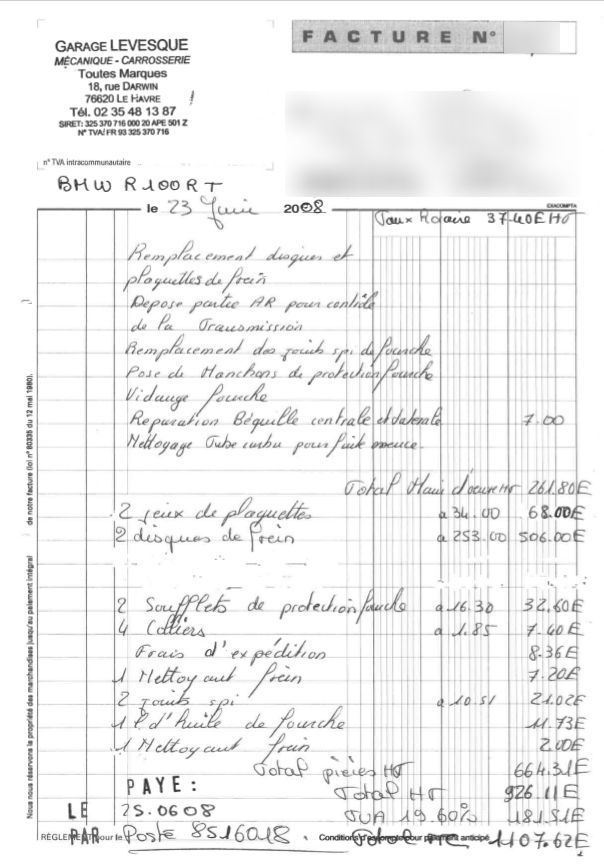 GARAGE LEVESQUE
MÉCANIQUE - CARROSSERIE
Toutes Marques
18, rue DARWIN
76620 LE HAVRE
Tél. 02 35 48 13 87
SIRET: 325 370 716 000 20 APE 501 Z
N° TVA: FR 93 325 370 716
FACTURE N°
n° TVA intracommunautaire
BMW R100RT
le 23 Juin 2008
EXACOMPTA
Taux Horaire 37.40E HT
Remplacement disques et
plaquettes de frein
Depose partie AR pour contrôle
de la Transmission
Remplacement des joints spi de fourche
Pose de Manchons de protection fourche
Vidange fourche
Reparation Béquille centrale et laterale 7.00
Nettoyage Tube pour fuite
Total Main d'oeuvre HT 261.80E
2 jeux de plaquettes a 34.00 68.00E
2 disques de frein a 253.00 506.00E
2 Soufflets de protection fourche a 16.30 32,60E
4 Colliers a 1.85 7.40E
Frais d'expédition 8.36E
1 Nettoyant frein 7.20E
2 joints spi a 10.51 21.02E
1 l d'huile de fourche 11.73E
1 Nettoyant frein 2.00E
Total pièces HT 664.31E
PAYE: Total HT 926.11E
LE 25.06 08 TVA 19.60% 181.51E
RÈGLEMENT pour le PAR Poste 8516018. Conditions d'escompte pour paiement anticipé Total TTC 1107.62E
Nous nous réservons la propriété des marchandises jusqu'au paiement intégral de notre facture (loi n° 80335 du 12 mai 1980).